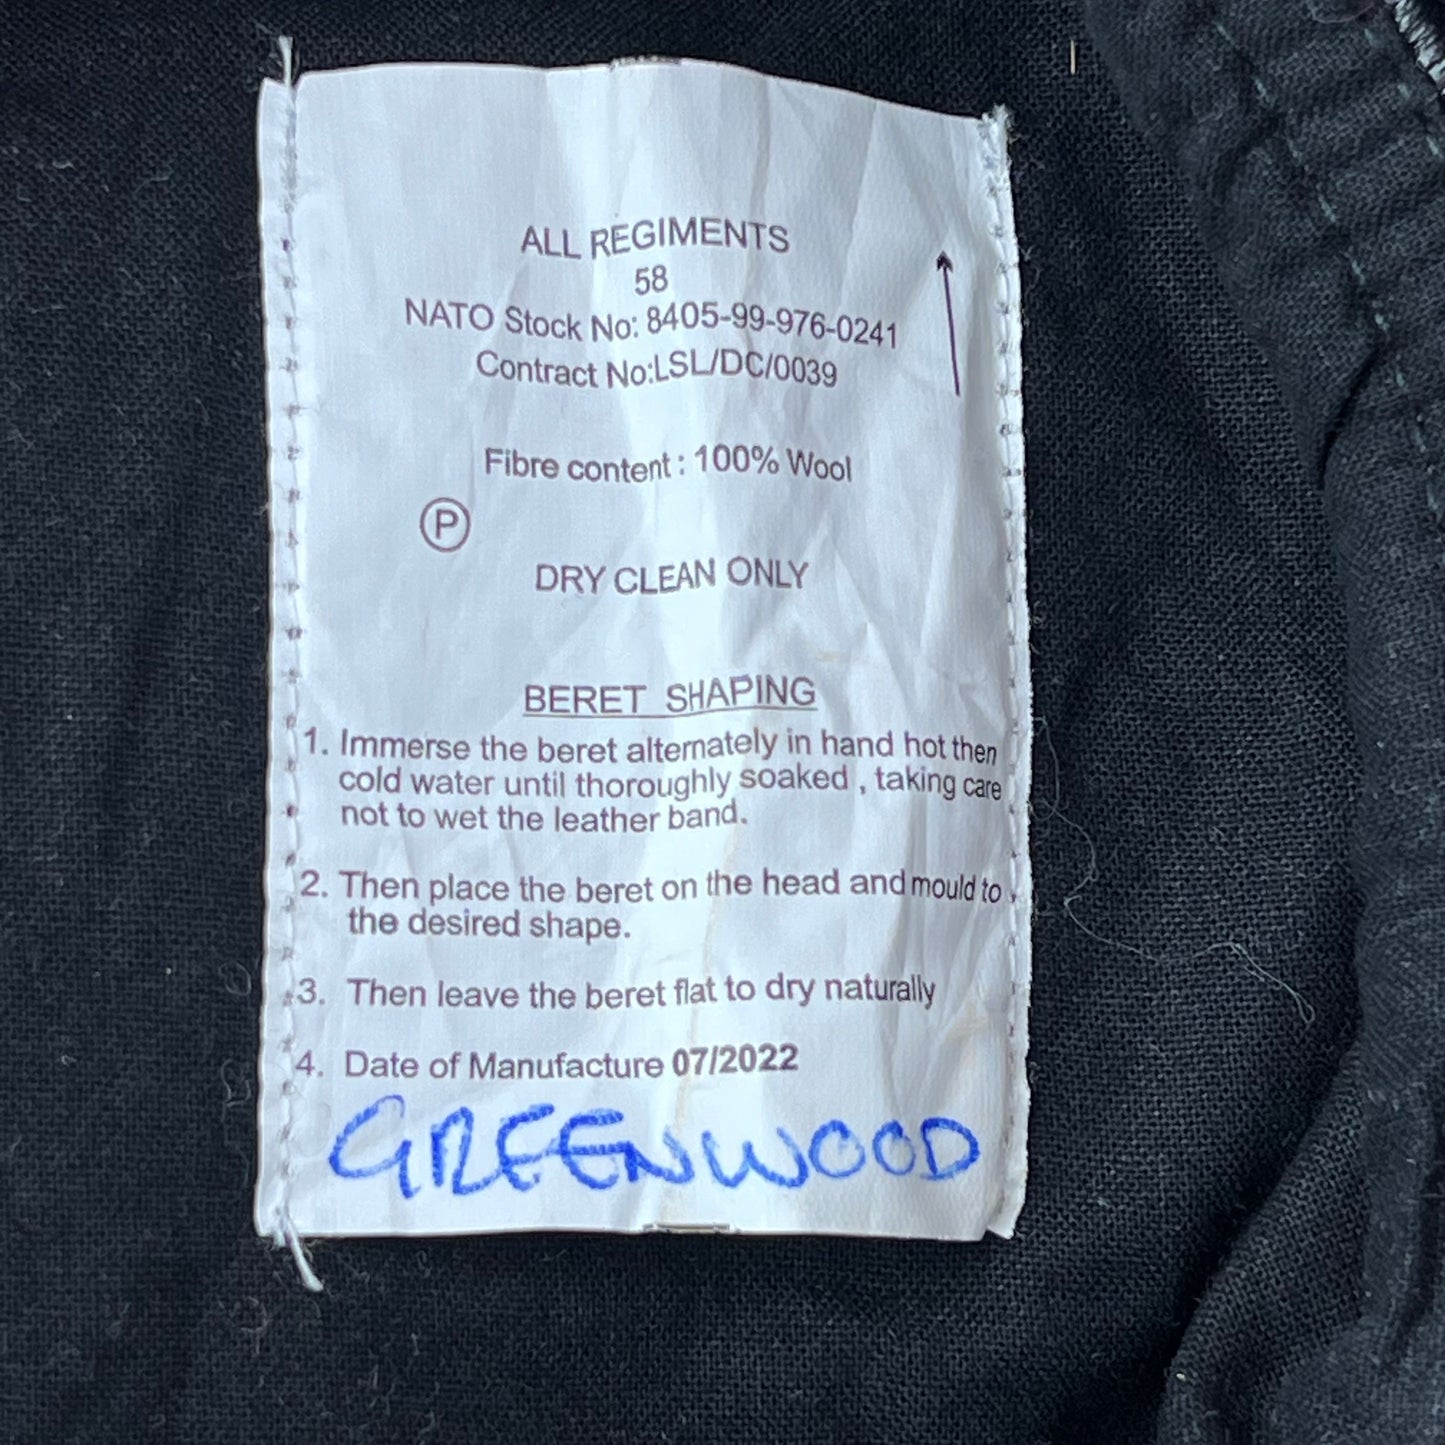 ALL REGIMENTS
58
NATO Stock No: 8405-99-976-0241
Contract No:LSL/DC/0039
Fibre content : 100% Wool
P
DRY CLEAN ONLY
BERET SHAPING
1. Immerse the beret alternately in hand hot then
cold water until thoroughly soaked , taking care
not to wet the leather band.
2. Then place the beret on the head and mould to
the desired shape.
3. Then leave the beret flat to dry naturally
4. Date of Manufacture 07/2022
GREENWOOD